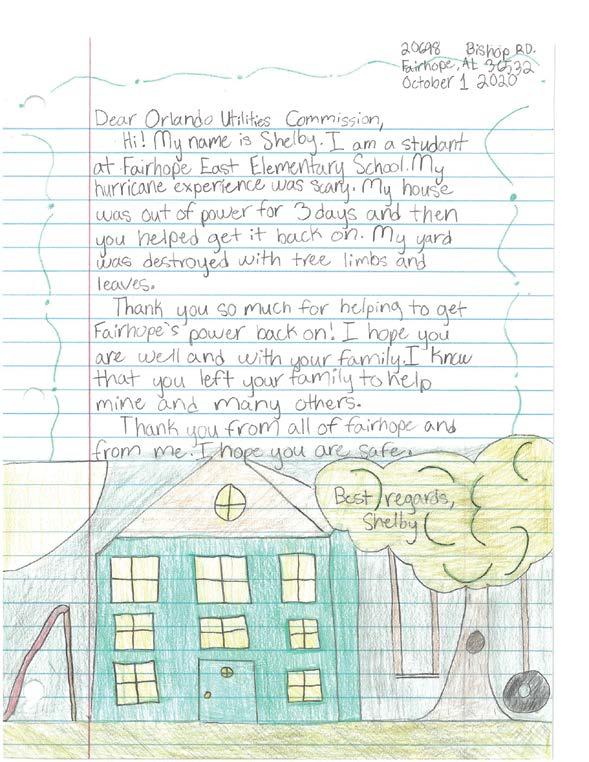 20698 Bishop RD.
Fairhope, AL 36532
October 1 2020
Dear Orlando Utilities Commission,
Hi! My name is Shelby. I am a studant
at Fairhope East Elementary School. My
hurricane experience was scary. My house
was out of power for 3 days and then
you helped get it back on. My yard
was destroyed with tree limbs and
leaves.
Thank you so much for helping to get
Fairhope's power back on! I hope you
are well and with your family. I know
that you left your family to help
mine and many others.
Thank you from all of fairhope and
from me. I hope you are safe.
Best regards,
Shelby